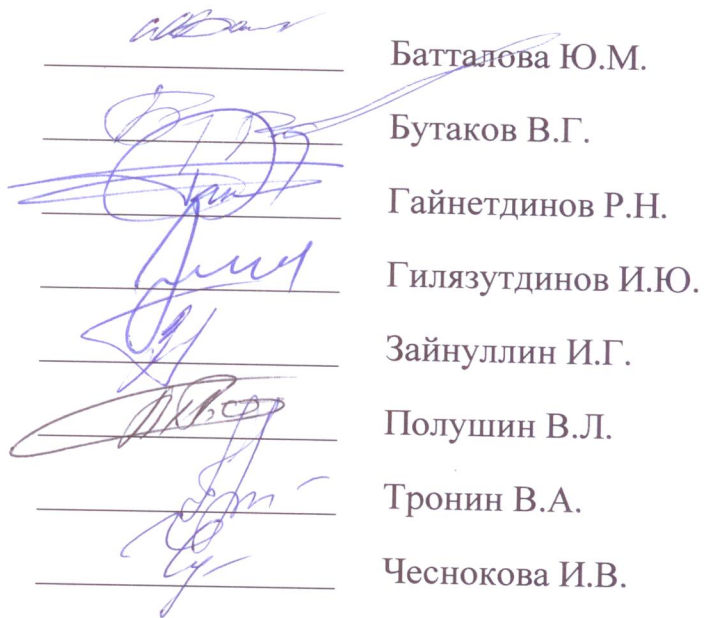 Батталова Ю.М.
Бутаков В.Г.
Гайнетдинов Р.Н.
Гилязутдинов И.Ю.
Зайнуллин И.Г.
Полушин В.Л.
Тронин В.А.
Чеснокова И.В.